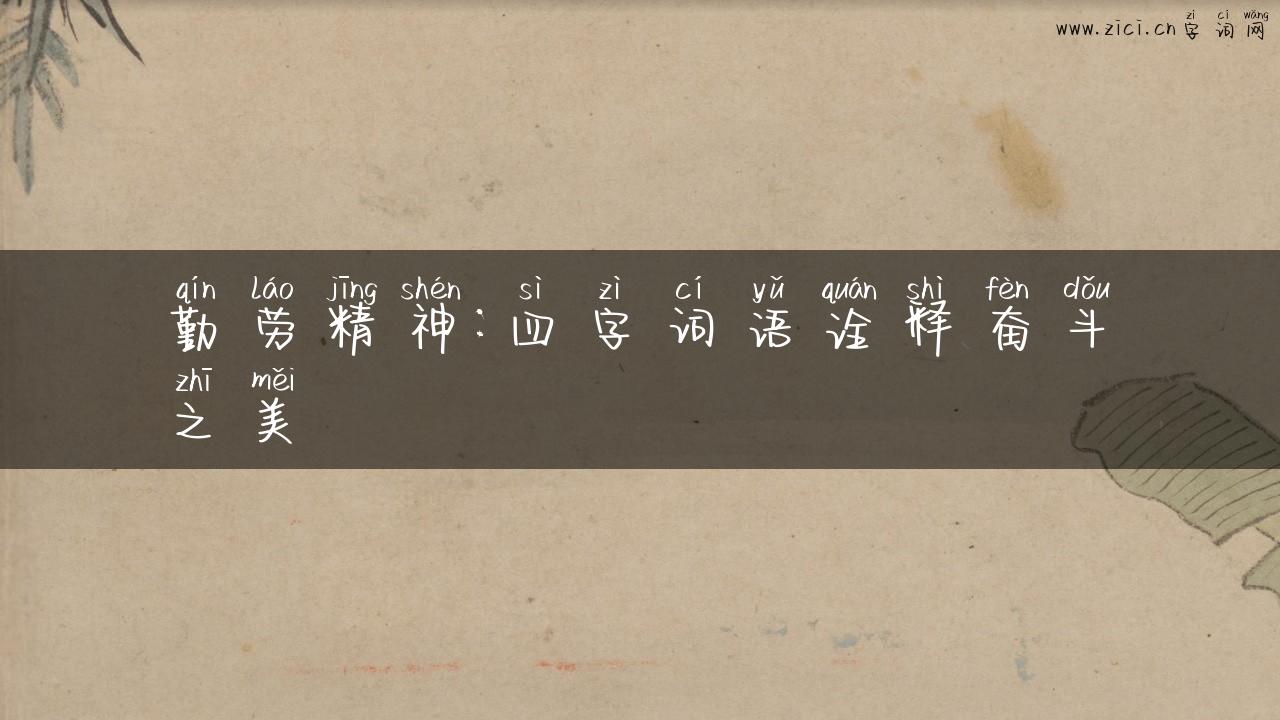 zì cí wǎng
www.zici.cn字词网
qín láo jīng shén sì zì cí yǔ quán shì fèn dǒu
勤劳精神:四字词语诠释奋斗
zhī měi
之美